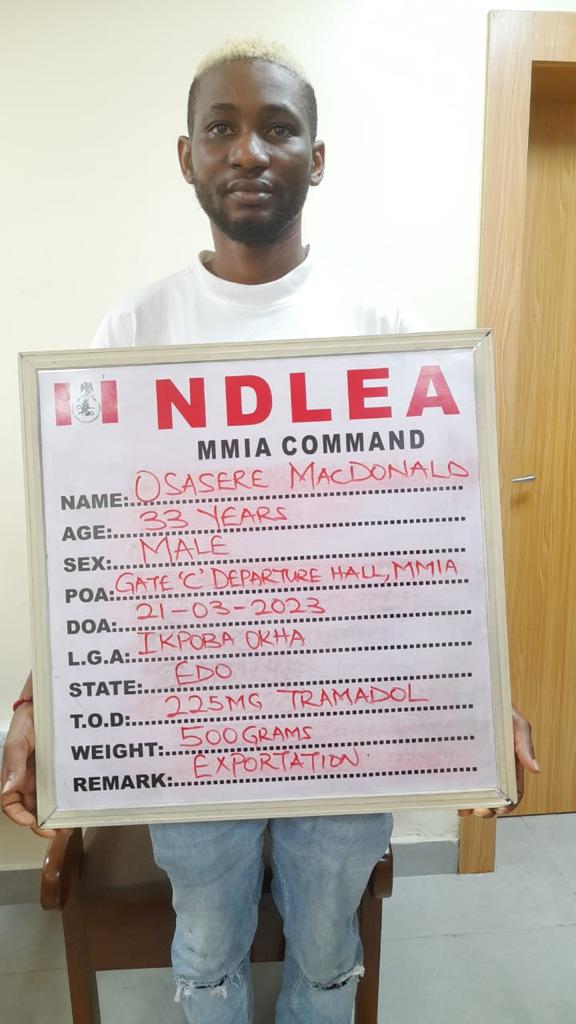 NDLEA
MMIA COMMAND
NAME: OSASERE MACDONALD
AGE: 33 YEARS
SEX: MALE
POA: GATE 'C' DEPARTURE HALL, MMIA
DOA: 21-03-2023
L.G.A: IKPOBA OKHA
STATE: EDO
T.O.D: 225MG TRAMADOL
WEIGHT: 500GRAMS
REMARK: EXPORTATION